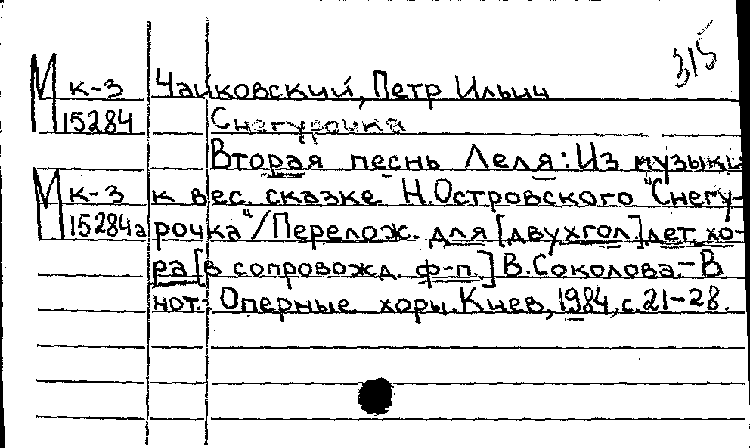 315
М к-3 Чайковский, Петр Ильич
15284 Снегурочка
Вторая песнь Леля: Из музыки
М к-3 к вес. сказке Н.Островского "Снегу-
15284а рочка"/Перелож. для [двухгол] дет. хо-
ра [в сопровожд. ф-п.] В.Соколова.- В
нот.: Оперные хоры. Киев, 1984, с. 21-28.